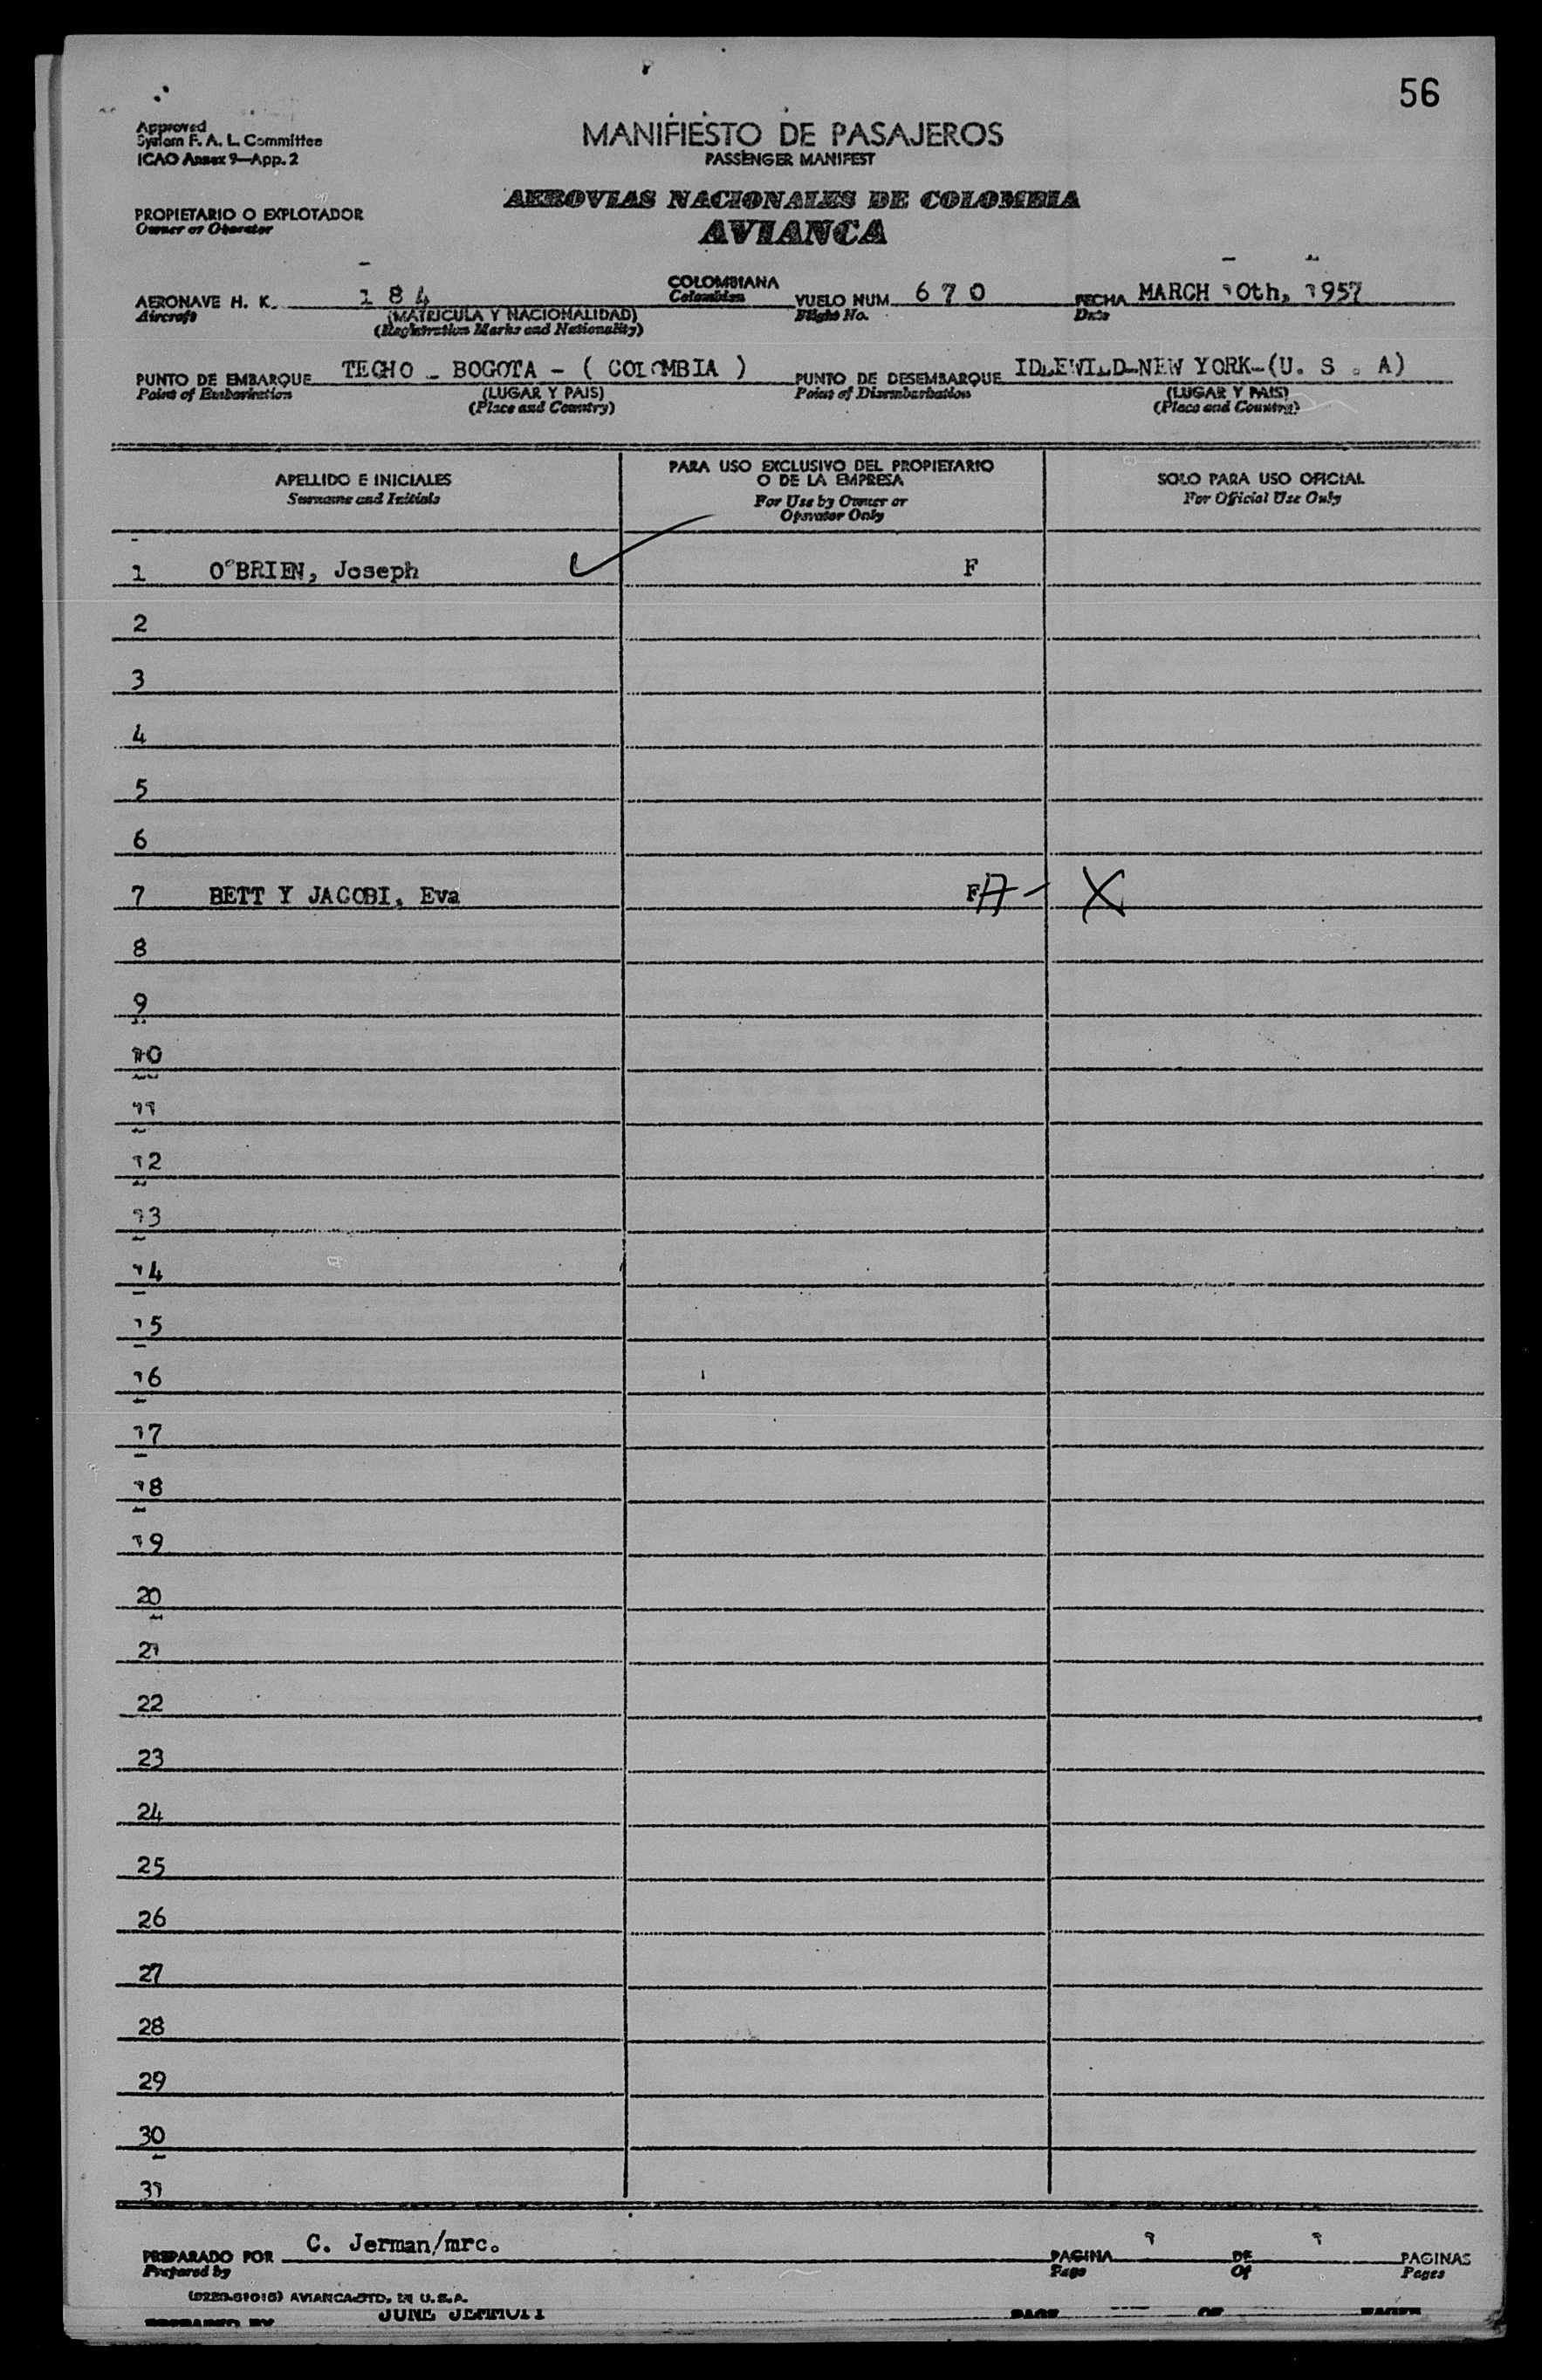 56
Approved
System F. A. L. Committee
ICAO Annex 9—App. 2
MANIFIESTO DE PASAJEROS
PASSENGER MANIFEST
PROPIETARIO O EXPLOTADOR
Owner or Operator
AEROVIAS NACIONALES DE COLOMBIA
AVIANCA
AERONAVE H. K. 184 COLOMBIANA VUELO NUM 670 FECHA MARCH 10th, 1957
Aircraft (MATRICULA Y NACIONALIDAD) Colombian Flight No. Date
(Registration Marks and Nationality)
PUNTO DE EMBARQUE TECHO - BOGOTA - ( COLOMBIA ) PUNTO DE DESEMBARQUE IDLEWILD-NEW YORK-(U. S . A)
Point of Embarkation (LUGAR Y PAIS) Point of Disembarkation (LUGAR Y PAIS)
(Place and Country) (Place and Country)
APELLIDO E INICIALES
Surname and Initials
PARA USO EXCLUSIVO DEL PROPIETARIO
O DE LA EMPRESA
For Use by Owner or
Operator Only
SOLO PARA USO OFICIAL
For Official Use Only
1 O'BRIEN, Joseph F
2
3
4
5
6
7 BETT Y JACOBI, Eva F A - X
8
9
10
11
12
13
14
15
16
17
18
19
20
21
22
23
24
25
26
27
28
29
30
31
PREPARADO POR C. Jerman/mrc. PAGINA 1 DE 1 PAGINAS
Prepared by Page Of Pages
AVIANCA-STD. IN U.S.A.
PREPARED BY JUNE JEMMOTT PAGE OF PAGES